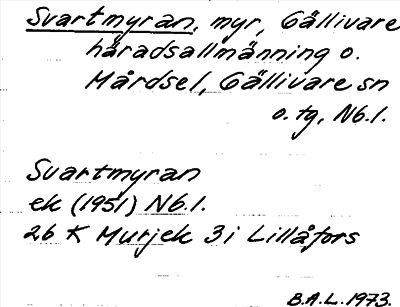 Svartmyran, myr, Gällivare
häradsallmänning o.
Mårdsel, Gällivare sn
o. tg, Nb.l.
Svartmyran
ek (1951) Nb.l.
26 K Murjek 3i Lillåfors
B.A.L. 1973.